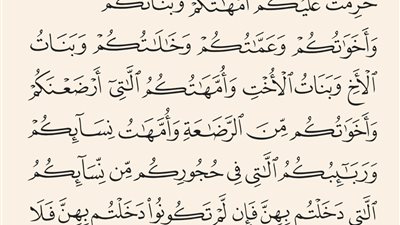 حُرِّمَتْ عَلَيْكُمْ أُمَّهَٰتُكُمْ وَبَنَاتُكُمْ
وَأَخَوَٰتُكُمْ وَعَمَّٰتُكُمْ وَخَٰلَٰتُكُمْ وَبَنَاتُ
ٱلْأَخِ وَبَنَاتُ ٱلْأُخْتِ وَأُمَّهَٰتُكُمُ ٱلَّٰتِىٓ أَرْضَعْنَكُمْ
وَأَخَوَٰتُكُم مِّنَ ٱلرَّضَٰعَةِ وَأُمَّهَٰتُ نِسَآئِكُمْ
وَرَبَٰٓئِبُكُمُ ٱلَّٰتِى فِى حُجُورِكُم مِّن نِّسَآئِكُمُ
ٱلَّٰتِى دَخَلْتُم بِهِنَّ فَإِن لَّمْ تَكُونُوا۟ دَخَلْتُم بِهِنَّ فَلَا